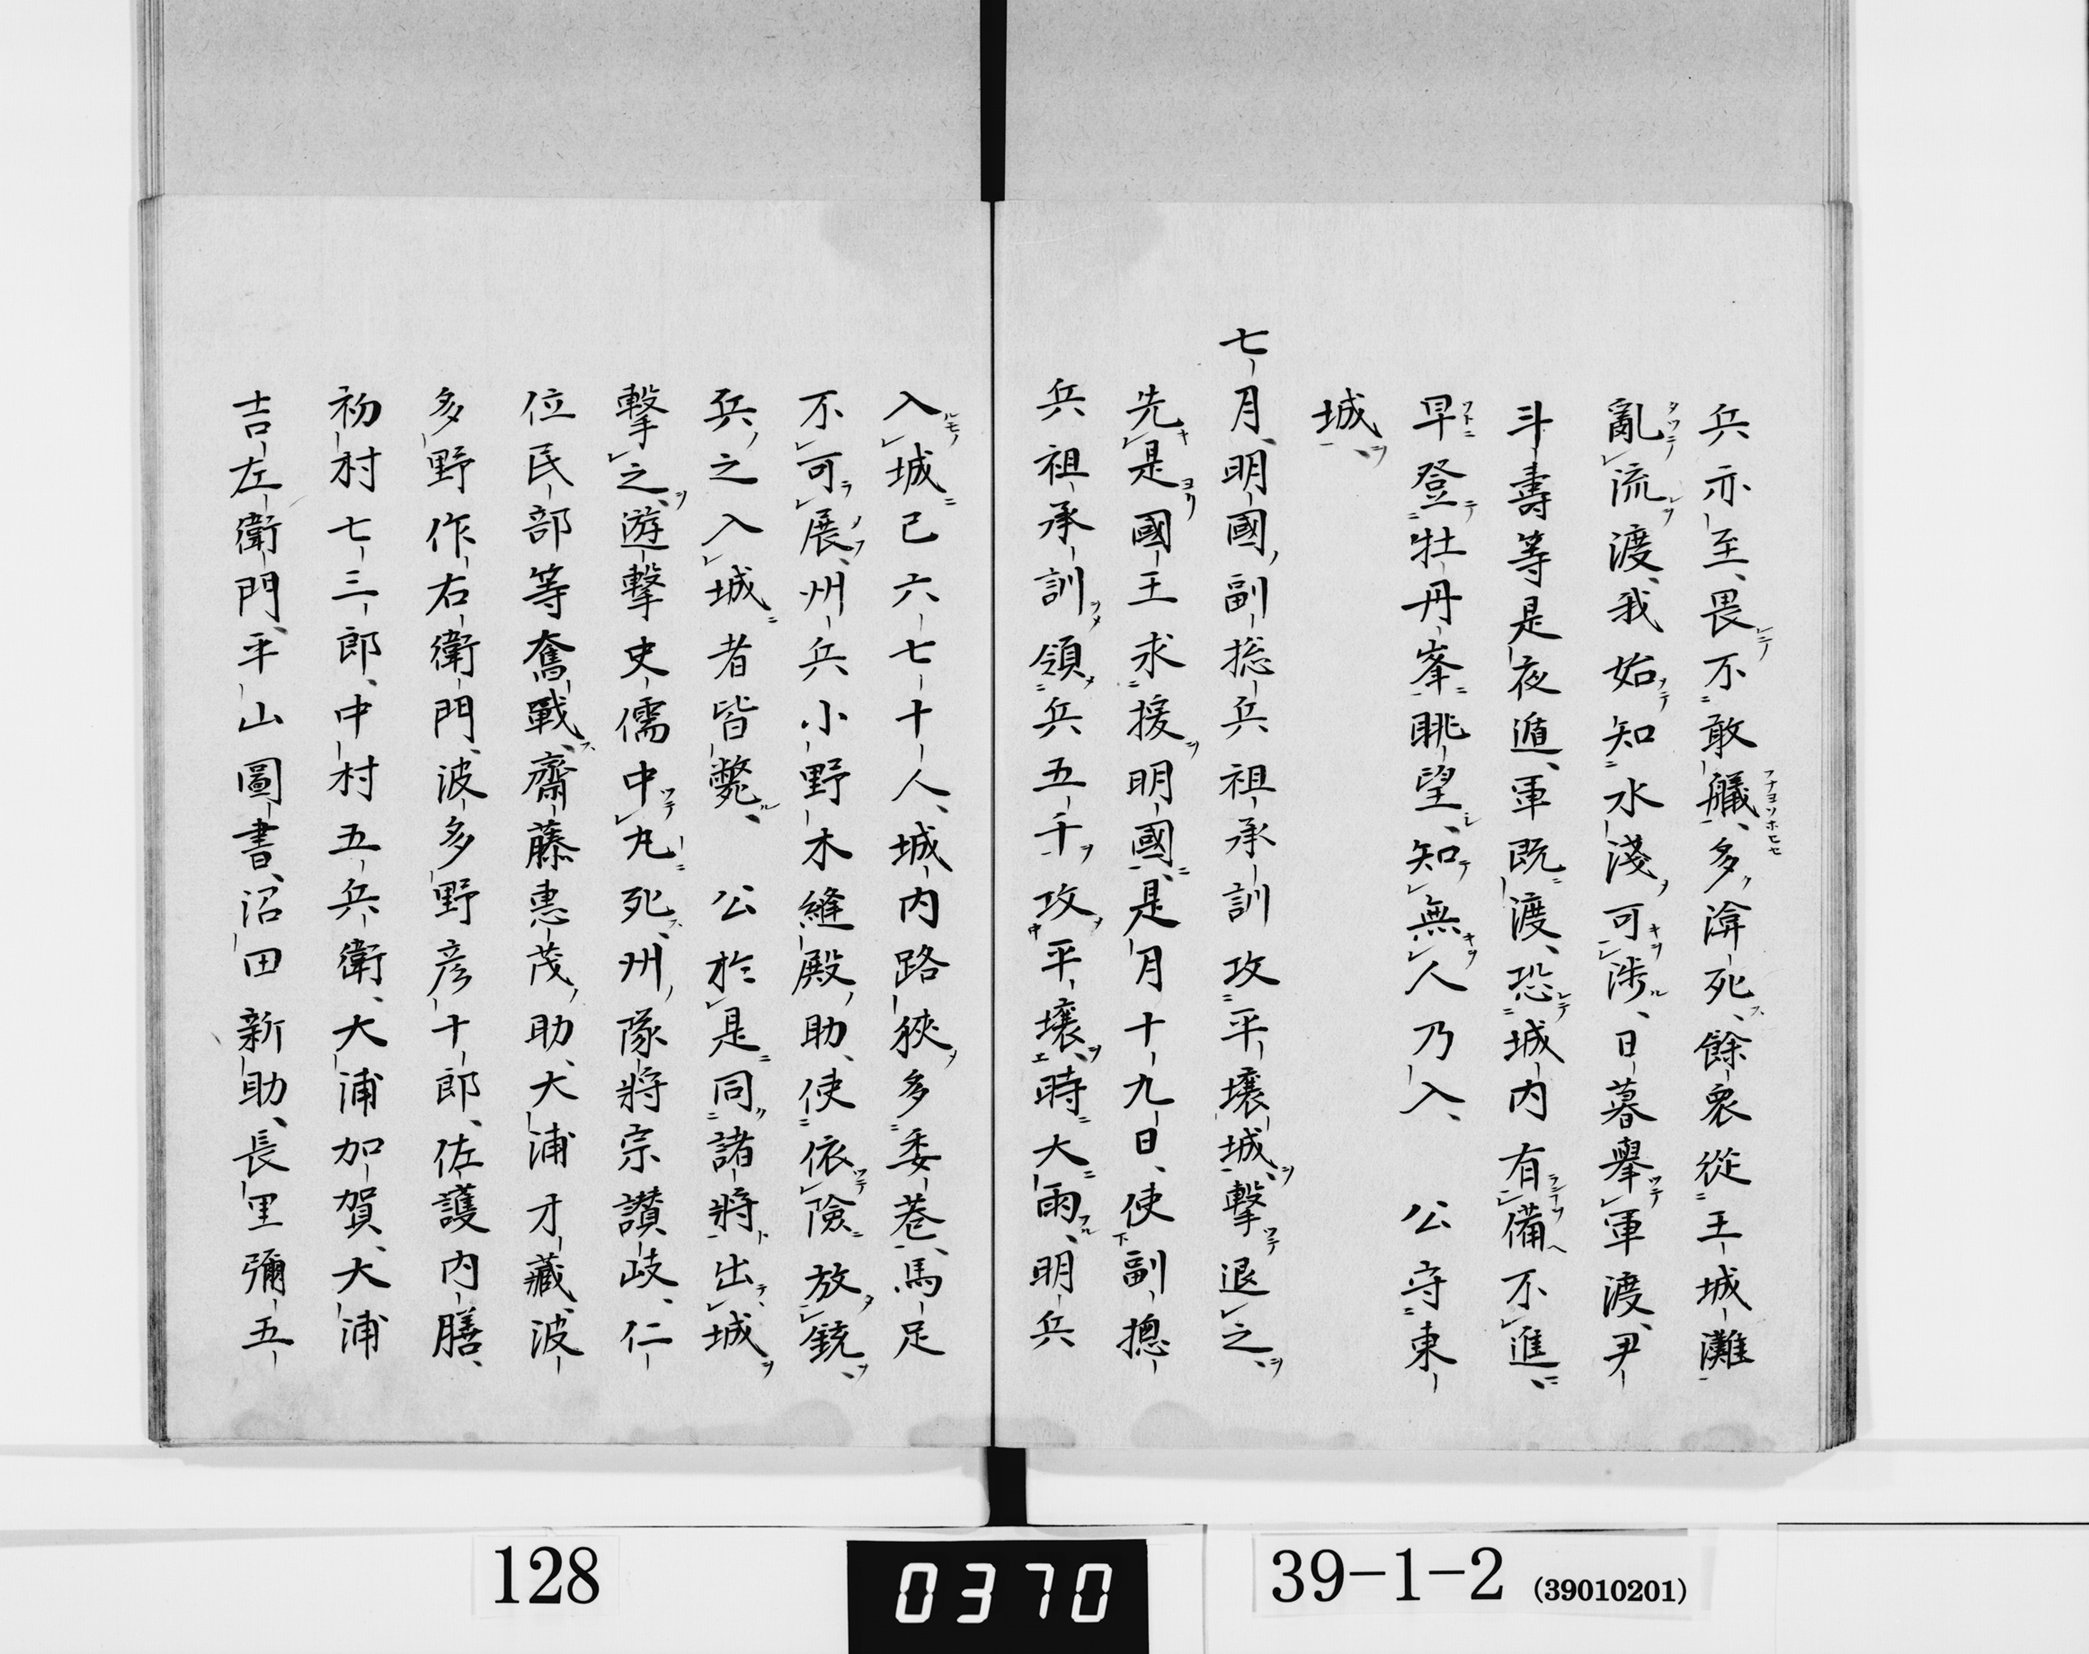 兵亦至、畏不敢艤、多渰死、餘衆從王城灘
亂流渡、我始知水淺可渉、日暮擧軍渡、尹
斗壽等是夜遁、軍既渡、恐城内有備不進、
早登牡丹峯眺望、知無人乃入、公守東
城、
七月、明國副捴兵祖承訓攻平壤城、擊退之、
先是國王求援明國、是月十九日、使副摠
兵祖承訓領兵五千攻平壤、時大雨、明兵
入城已六七十人、城内路狹多委巷、馬足
不可展、州兵小野木縫殿助、使依險放銃、
兵之入城者皆斃、公於是同諸將出城
擊之、遊擊史儒中丸死、州隊將宗讃岐、仁
位民部等奮戰、齋藤惠茂助、大浦才藏、波
多野作右衛門、波多野彦十郎、佐護内膳、
初村七三郎、中村五兵衛、大浦加賀、大浦
吉左衛門、平山圖書、沼田新助、長里彌五
128
0370
39-1-2 (39010201)